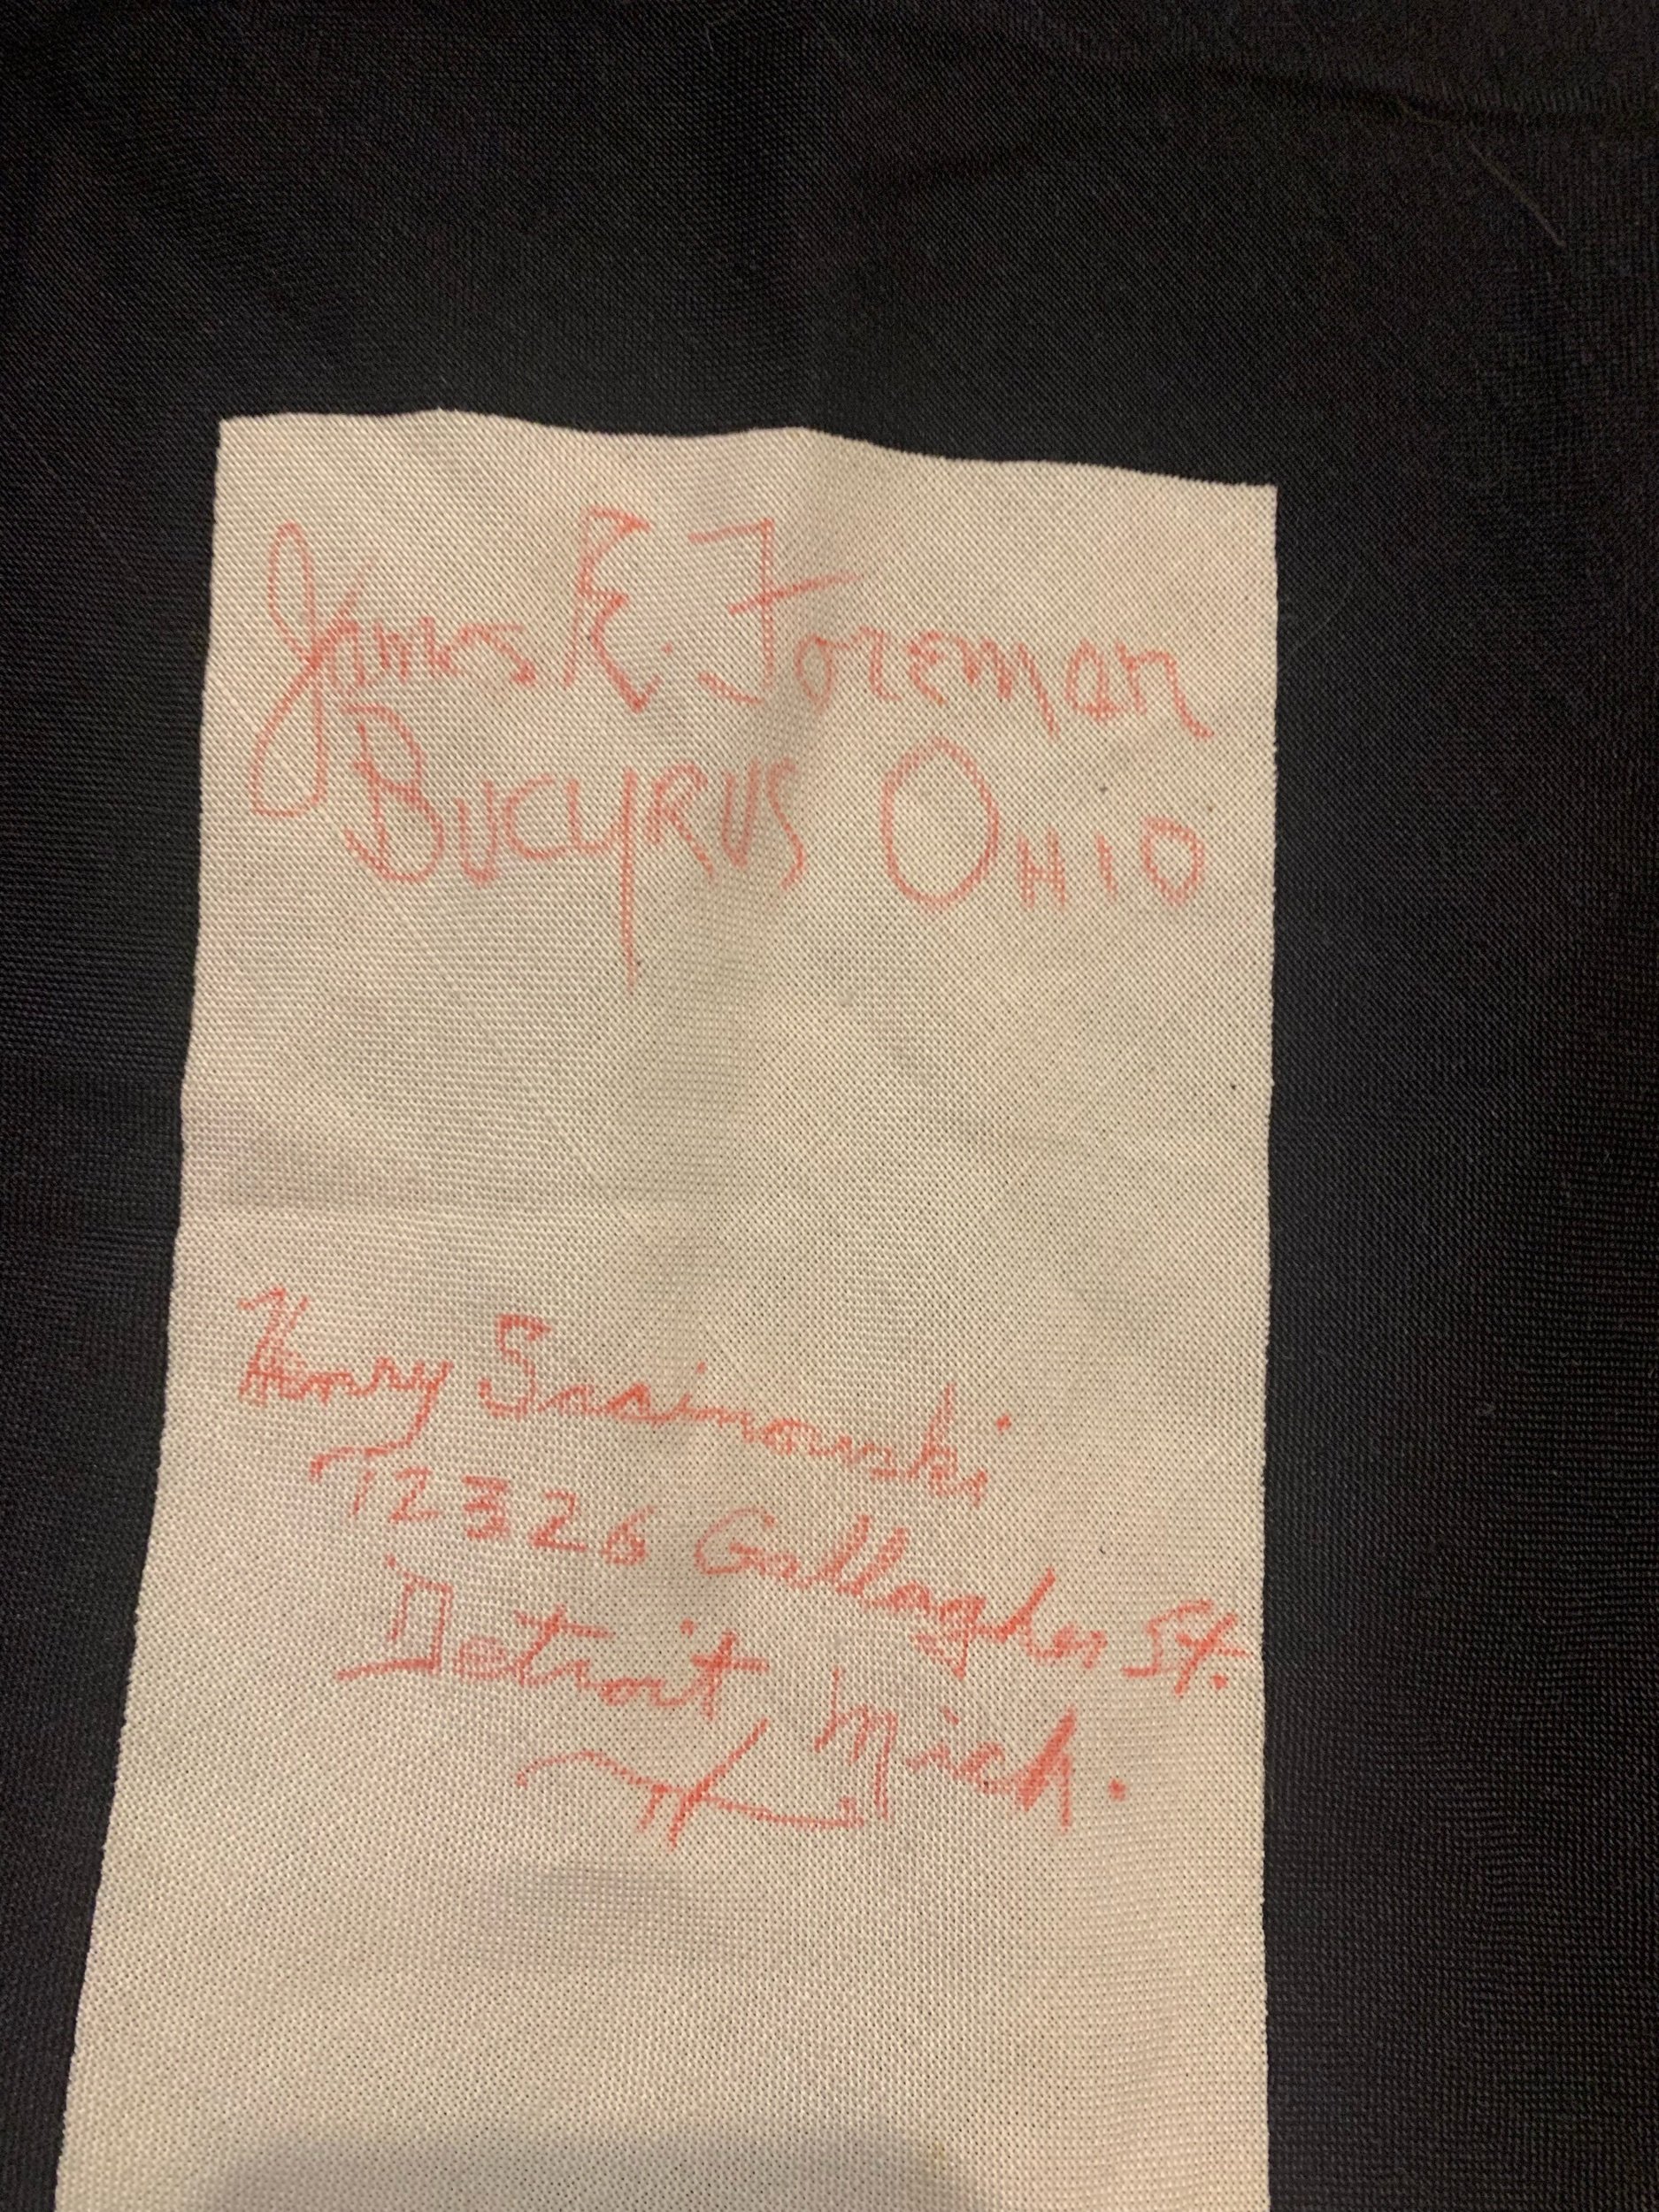 James R. Foreman
BUCYRUS OHIO
Henry Sasinowski
12326 Gallagher St.
Detroit, Mich.